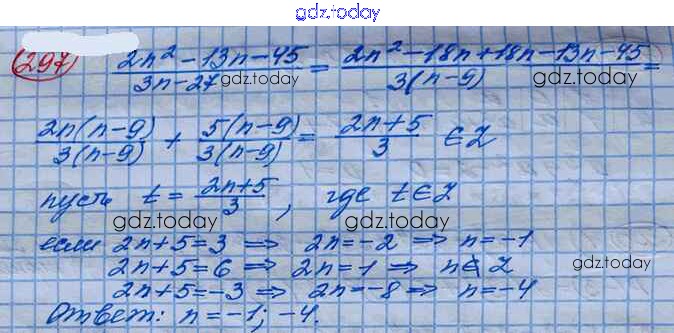 gdz.today
297 (2n² - 13n - 45)/(3n - 27) = (2n² - 18n + 18n - 13n - 45)/(3(n - 9)) =
gdz.today gdz.today
2n(n-9)/3(n-9) + 5(n-9)/3(n-9) = (2n+5)/3 ∈ Z
пусть t = (2n+5)/3, где t ∈ Z
gdz.today gdz.today
если 2n+5=3 ⇒ 2n=-2 ⇒ n=-1
2n+5=6 ⇒ 2n=1 ⇒ n∉Z
gdz.today gdz.today
2n+5=-3 ⇒ 2n=-8 ⇒ n=-4
Ответ: n=-1; -4.